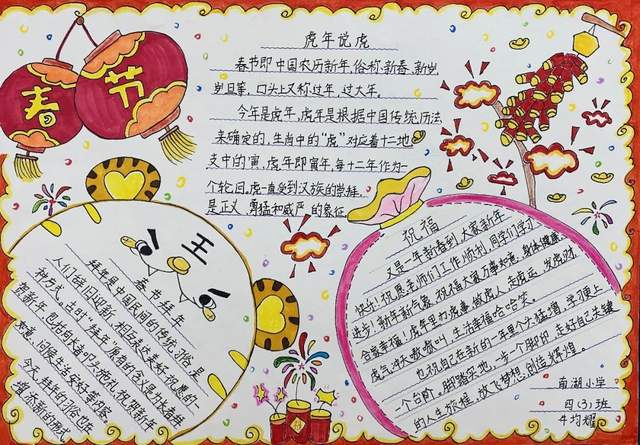 春节
虎年说虎
春节即中国农历新年,俗称新春、新岁、
岁旦等,口头上又称过年、过大年。
今年是虎年,虎年是根据中国传统历法
来确定的,生肖中的“虎”对应着十二地
支中的寅,虎年即寅年,每十二年作为
一个轮回,虎一直受到汉族的崇拜,
是正义、勇猛和威严的象征。
王
春节拜年
拜年是中国民间的传统习俗,是
人们辞旧迎新、相互表达美好祝愿的
一种方式。古时“拜年”原有的含义是为长者拜
贺新年,包括向长者叩头施礼、祝贺新年
问候生活好等内容。
今天,拜年的习俗也在
增添新的形式
祝福
又是一年新春到,大家新年
快乐!祝愿老师们工作顺利,同学们学习
进步!新年新气象,祝福大家万事如意、身体健康、
合家幸福,虎年里力虎事威虎人,走虎运,发虎财,
虎气冲天嗷嗷叫,生活幸福哈哈笑。
也祝自己在新的一年里个方猛增,学习更上
一个台阶。脚踏实地,一步一个脚印,走好自己关键
的人生旅程,放飞梦想,创造辉煌。
南湖小学
四(3)班
牛均耀